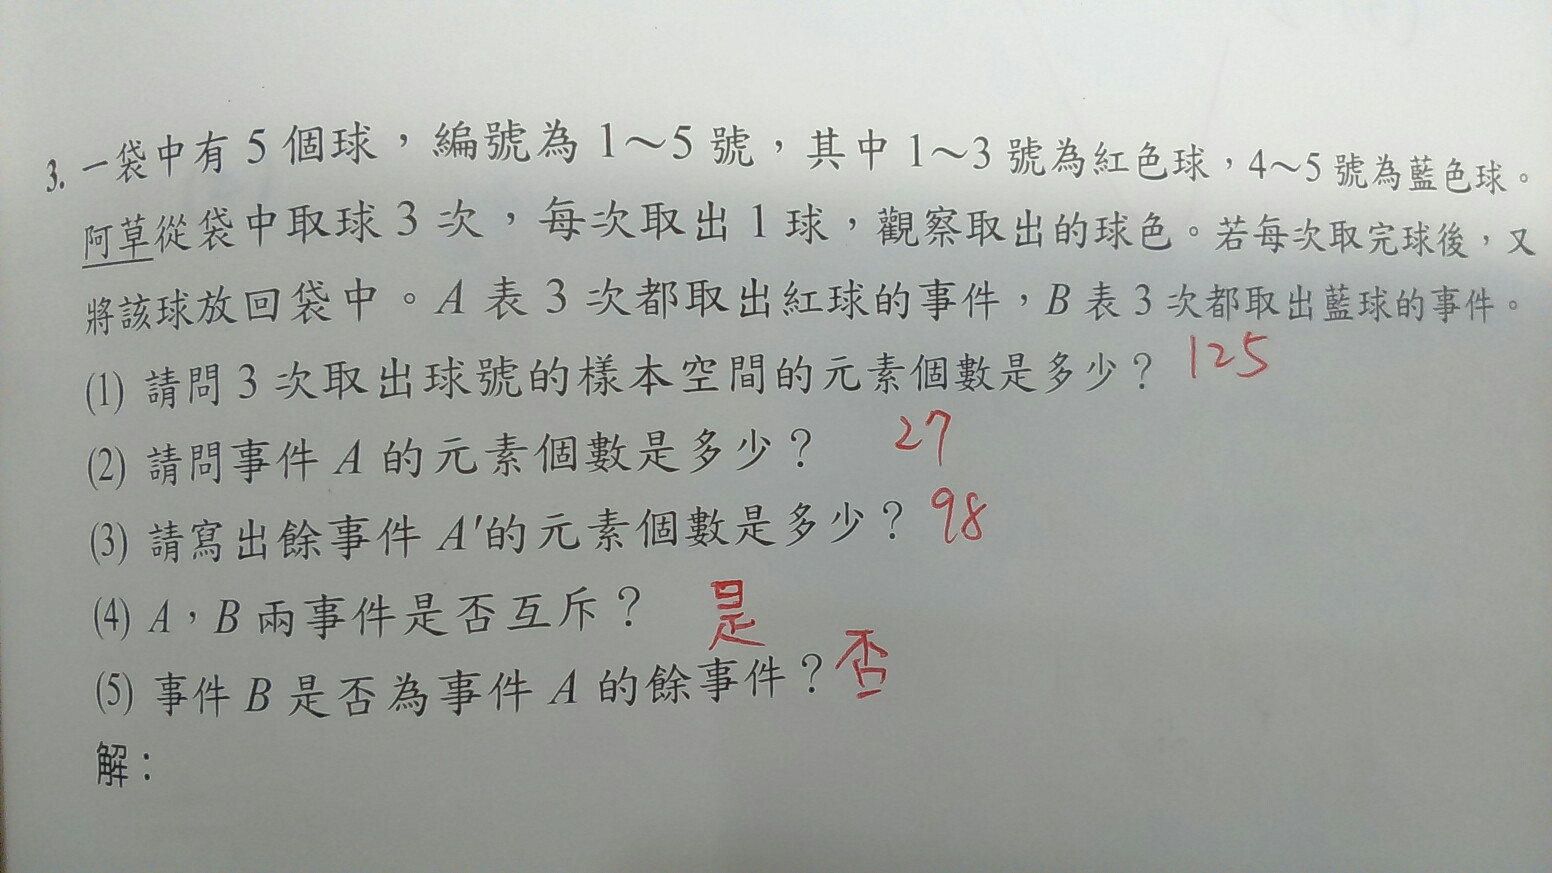 3. 一袋中有 5 個球，編號為 1～5 號，其中 1～3 號為紅色球，4～5 號為藍色球。
阿草從袋中取球 3 次，每次取出 1 球，觀察取出的球色。若每次取完球後，又
將該球放回袋中。A 表 3 次都取出紅球的事件，B 表 3 次都取出藍球的事件。
(1) 請問 3 次取出球號的樣本空間的元素個數是多少？ 125
(2) 請問事件 A 的元素個數是多少？ 27
(3) 請寫出餘事件 A'的元素個數是多少？ 98
(4) A，B 兩事件是否互斥？ 是
(5) 事件 B 是否為事件 A 的餘事件？ 否
解：